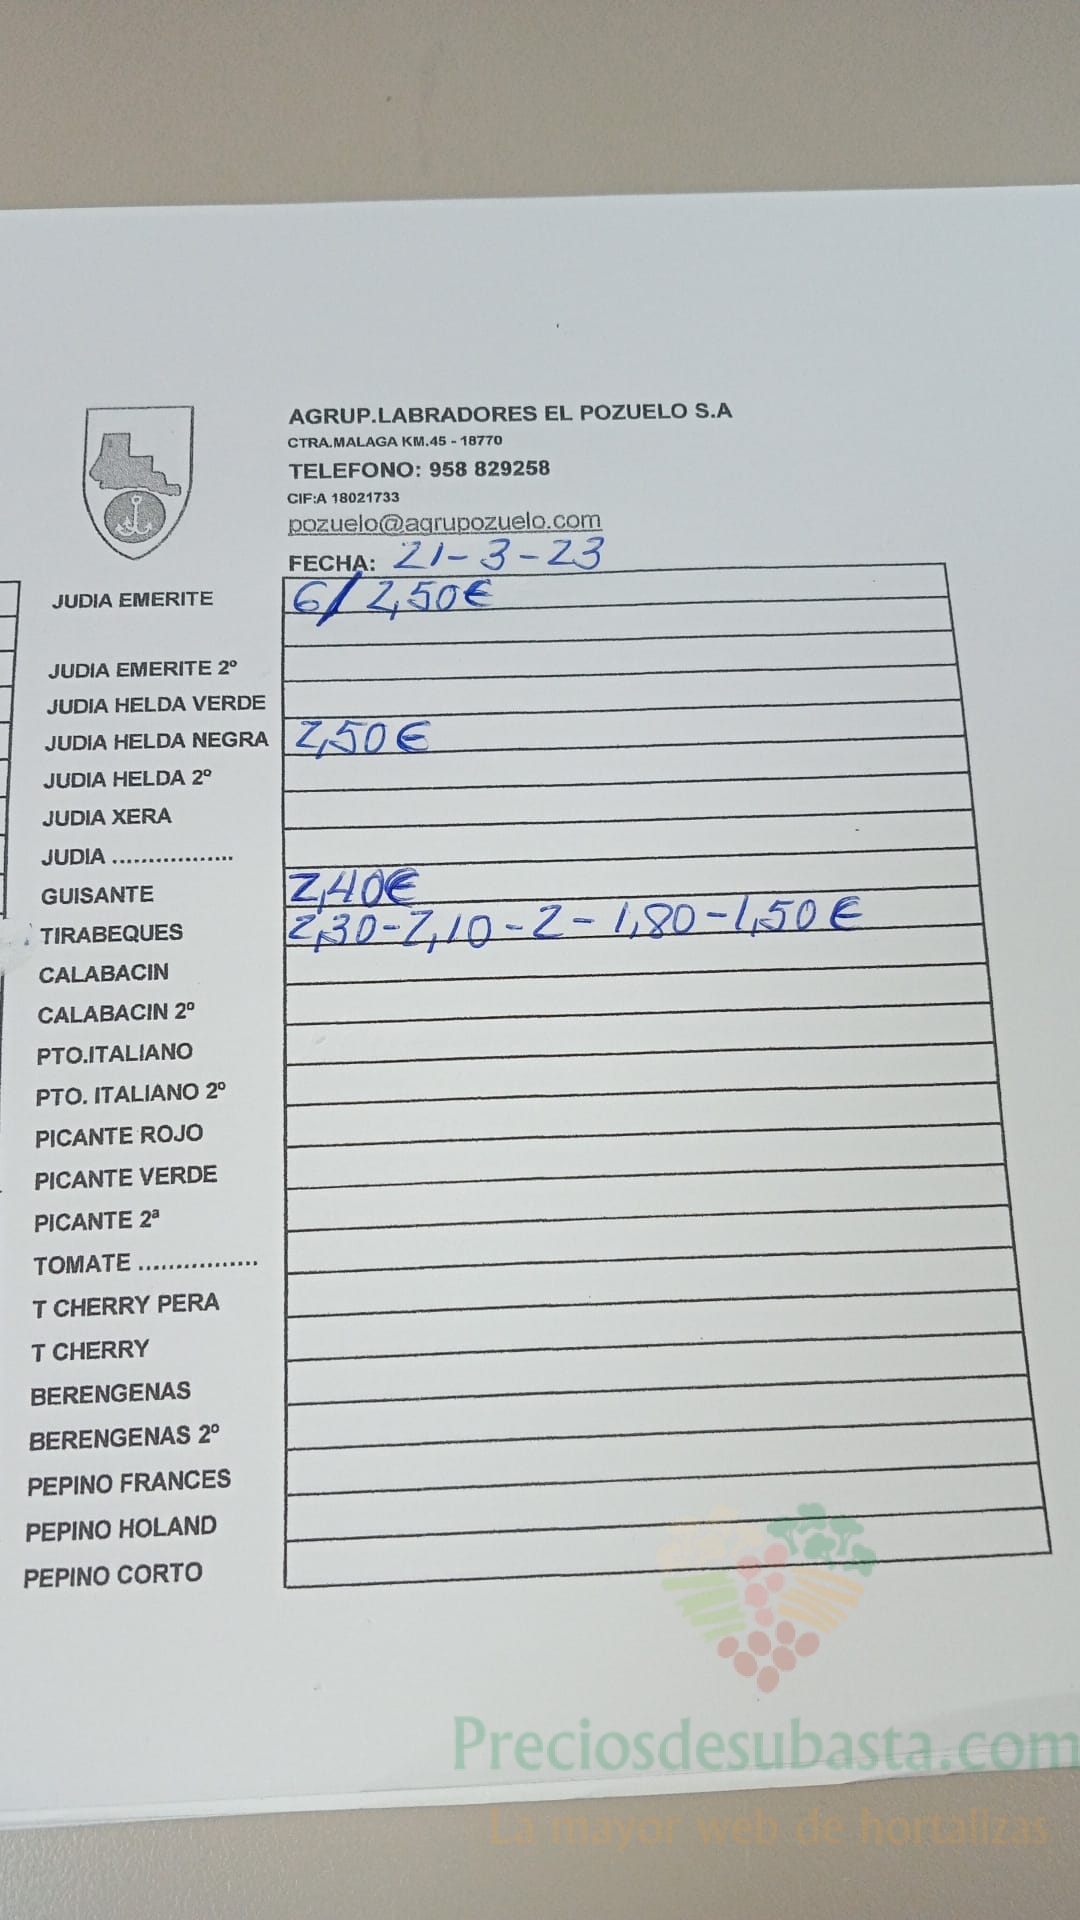 AGRUP.LABRADORES EL POZUELO S.A
CTRA.MALAGA KM.45 - 18770
TELEFONO: 958 829258
CIF:A 18021733
pozuelo@agrupozuelo.com
FECHA: 21-3-23
JUDIA EMERITE 6/2,50€
JUDIA EMERITE 2º
JUDIA HELDA VERDE
JUDIA HELDA NEGRA 2,50€
JUDIA HELDA 2º
JUDIA XERA
JUDIA .................
GUISANTE 2,40€
TIRABEQUES 2,30-2,10-2-1,80-1,50€
CALABACIN
CALABACIN 2º
PTO.ITALIANO
PTO. ITALIANO 2º
PICANTE ROJO
PICANTE VERDE
PICANTE 2ª
TOMATE ................
T CHERRY PERA
T CHERRY
BERENGENAS
BERENGENAS 2º
PEPINO FRANCES
PEPINO HOLAND
PEPINO CORTO
Preciosdesubasta.com
La mayor web de hortalizas